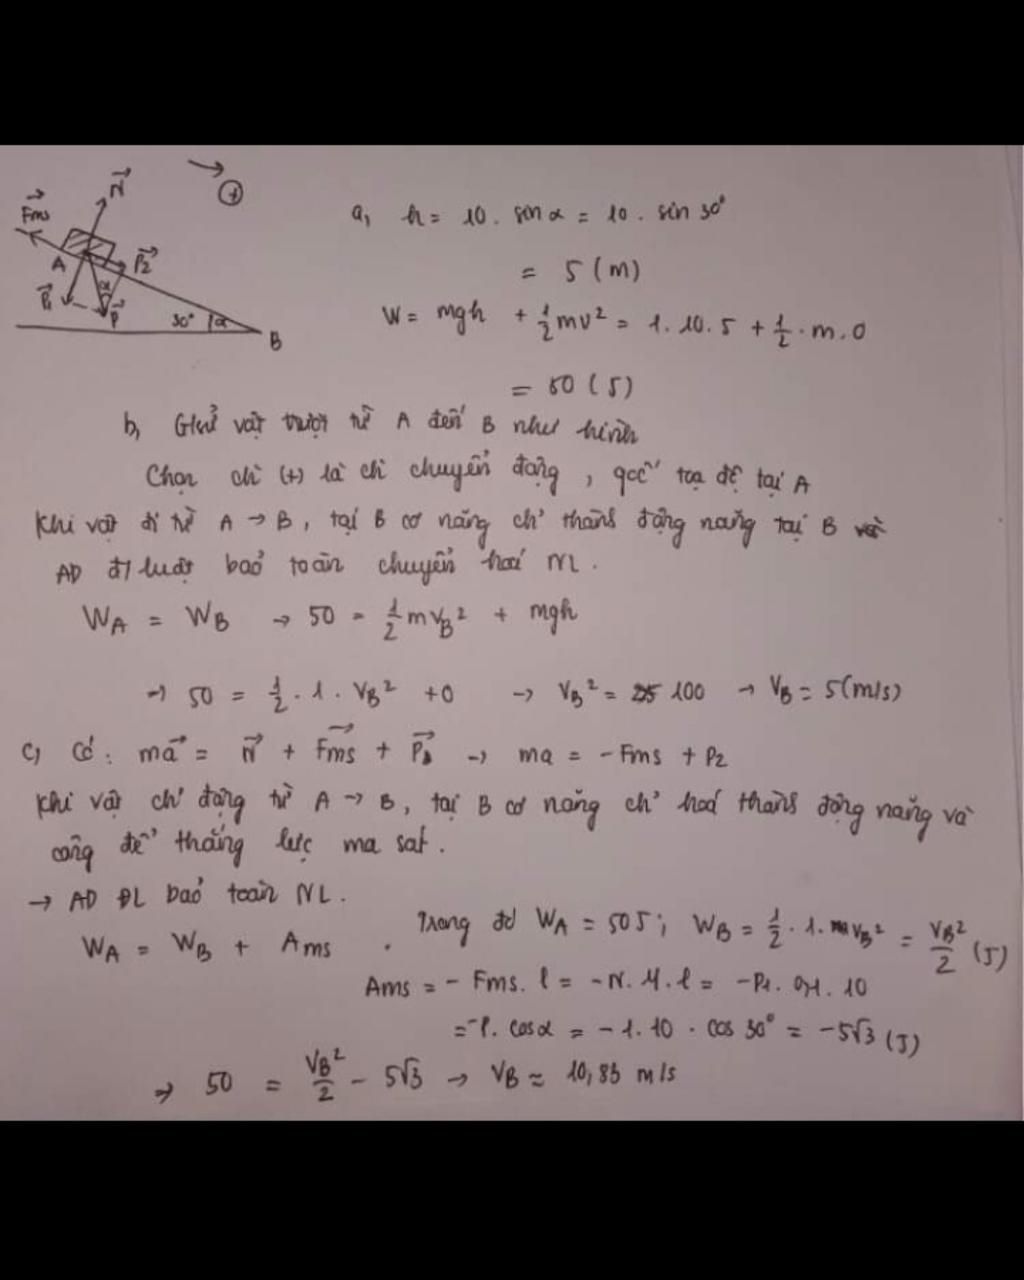 N
Fms
+
A
P2
P1
α
P
30° α
B
a, h = 10 . sin α = 10 . sin 30°
= 5 (m)
W = mgh + 1/2 mv² = 1. 10. 5 + 1/2 . m. 0
= 50 (J)
b, Giả vật trượt từ A đến B như hình
Chọn ch` (+) là ch` chuyển động , gốc toạ độ tại A
Khi vật đi từ A → B , tại B cơ năng ch' thành động năng tại B
AD đl luật bảo toàn chuyển hoá NL .
WA = WB → 50 = 1/2 mVB² + mgh
→ 50 = 1/2 . 1 . VB² + 0 → VB² = 100 → VB = 5 (m/s)
c, Có : ma = N + Fms + P → ma = - Fms + P2
Khi vật ch' động từ A → B , tại B cơ năng ch' hoá thành động năng và
công để thắng lực ma sát .
→ AD ĐL bảo toàn NL .
WA = WB + Ams . Trong đó WA = 50J ; WB = 1/2 . 1. VB² = VB²/2 (J)
Ams = - Fms. l = -N. M. l = -P1. 0,1. 10
= -P. cosα = - 1. 10 . cos 30° = -5√3 (J)
→ 50 = VB²/2 - 5√3 → VB ≈ 10,83 m/s